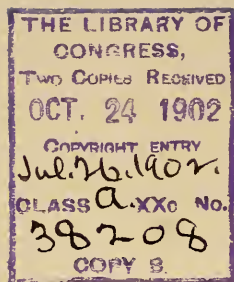 THE LIBRARY OF
CONGRESS,
TWO COPIES RECEIVED
OCT. 24 1902
COPYRIGHT ENTRY
Jul. 26. 1902.
CLASS a. XXc No.
38208
COPY B.